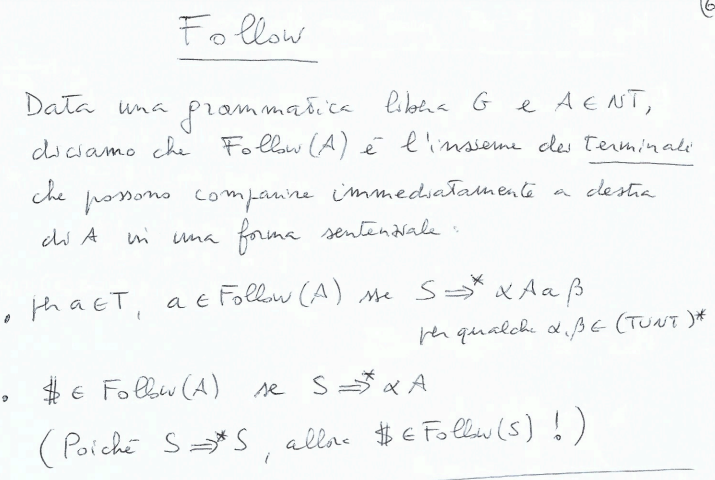 6
Follow
Data una grammatica libera G e A ∈ NT,
diciamo che Follow(A) è l'insieme dei terminali
che possono comparire immediatamente a destra
di A in una forma sentenziale:
• per a ∈ T, a ∈ Follow(A) sse S ⇒* α A a β
per qualche α, β ∈ (T∪NT)*
• $ ∈ Follow(A) se S ⇒* α A
(Poiché S ⇒* S, allora $ ∈ Follow(S) !)